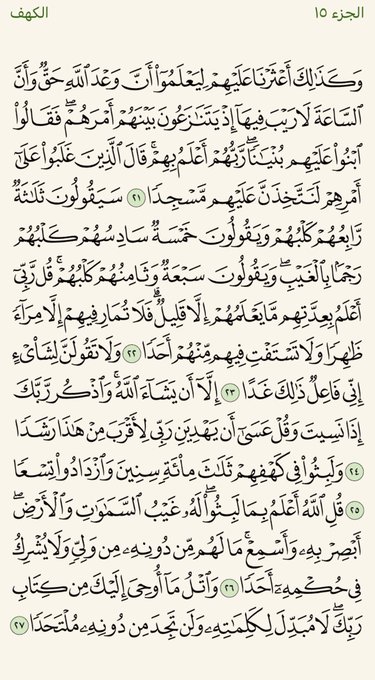 الجزء ١٥
الكهف
وَكَذَٰلِكَ أَعْثَرْنَا عَلَيْهِمْ لِيَعْلَمُوٓا۟ أَنَّ وَعْدَ ٱللَّهِ حَقٌّ وَأَنَّ
ٱلسَّاعَةَ لَا رَيْبَ فِيهَآ إِذْ يَتَنَٰزَعُونَ بَيْنَهُمْ أَمْرَهُمْ ۖ فَقَالُوا۟
ٱبْنُوا۟ عَلَيْهِم بُنْيَٰنًا ۖ رَّبُّهُمْ أَعْلَمُ بِهِمْ ۚ قَالَ ٱلَّذِينَ غَلَبُوا۟ عَلَىٰٓ
أَمْرِهِمْ لَنَتَّخِذَنَّ عَلَيْهِم مَّسْجِدًا ٢١ سَيَقُولُونَ ثَلَٰثَةٌ
رَّابِعُهُمْ كَلْبُهُمْ وَيَقُولُونَ خَمْسَةٌ سَادِسُهُمْ كَلْبُهُمْ
رَجْمًۢا بِٱلْغَيْبِ ۖ وَيَقُولُونَ سَبْعَةٌ وَثَامِنُهُمْ كَلْبُهُمْ ۚ قُل رَّبِّىٓ
أَعْلَمُ بِعِدَّتِهِم مَّا يَعْلَمُهُمْ إِلَّا قَلِيلٌ ۗ فَلَا تُمَارِ فِيهِمْ إِلَّا مِرَآءً
ظَٰهِرًا وَلَا تَسْتَفْتِ فِيهِم مِّنْهُمْ أَحَدًا ٢٢ وَلَا تَقُولَنَّ لِشَا۟ىْءٍ
إِنِّى فَاعِلٌ ذَٰلِكَ غَدًا ٢٣ إِلَّآ أَن يَشَآءَ ٱللَّهُ ۚ وَٱذْكُر رَّبَّكَ
إِذَا نَسِيتَ وَقُلْ عَسَىٰٓ أَن يَهْدِيَنِ رَبِّى لِأَقْرَبَ مِنْ هَٰذَا رَشَدًا
٢٤ وَلَبِثُوا۟ فِى كَهْفِهِمْ ثَلَٰثَ مِا۟ئَةٍ سِنِينَ وَٱزْدَادُوا۟ تِسْعًا
٢٥ قُلِ ٱللَّهُ أَعْلَمُ بِمَا لَبِثُوا۟ ۖ لَهُۥ غَيْبُ ٱلسَّمَٰوَٰتِ وَٱلْأَرْضِ ۖ
أَبْصِرْ بِهِۦ وَأَسْمِعْ ۚ مَا لَهُم مِّن دُونِهِۦ مِن وَلِىٍّ وَلَا يُشْرِكُ
فِى حُكْمِهِۦٓ أَحَدًا ٢٦ وَٱتْلُ مَآ أُوحِىَ إِلَيْكَ مِن كِتَابِ
رَبِّكَ ۖ لَا مُبَدِّلَ لِكَلِمَٰتِهِۦ وَلَن تَجِدَ مِن دُونِهِۦ مُلْتَحَدًا ٢٧